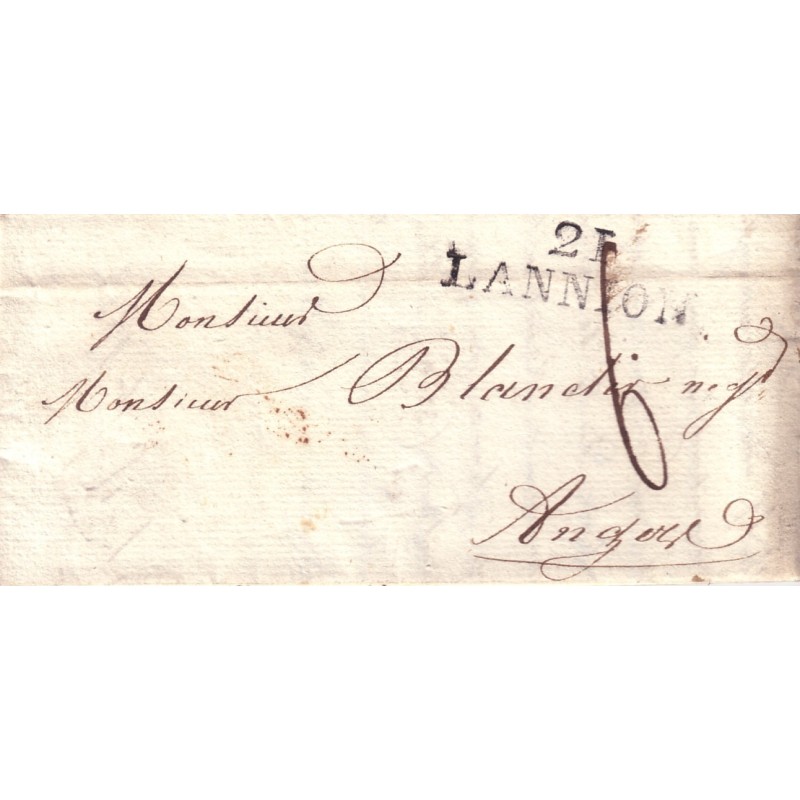 21
LANNION
6
Monsieur
Monsieur Blancler negt
Angers